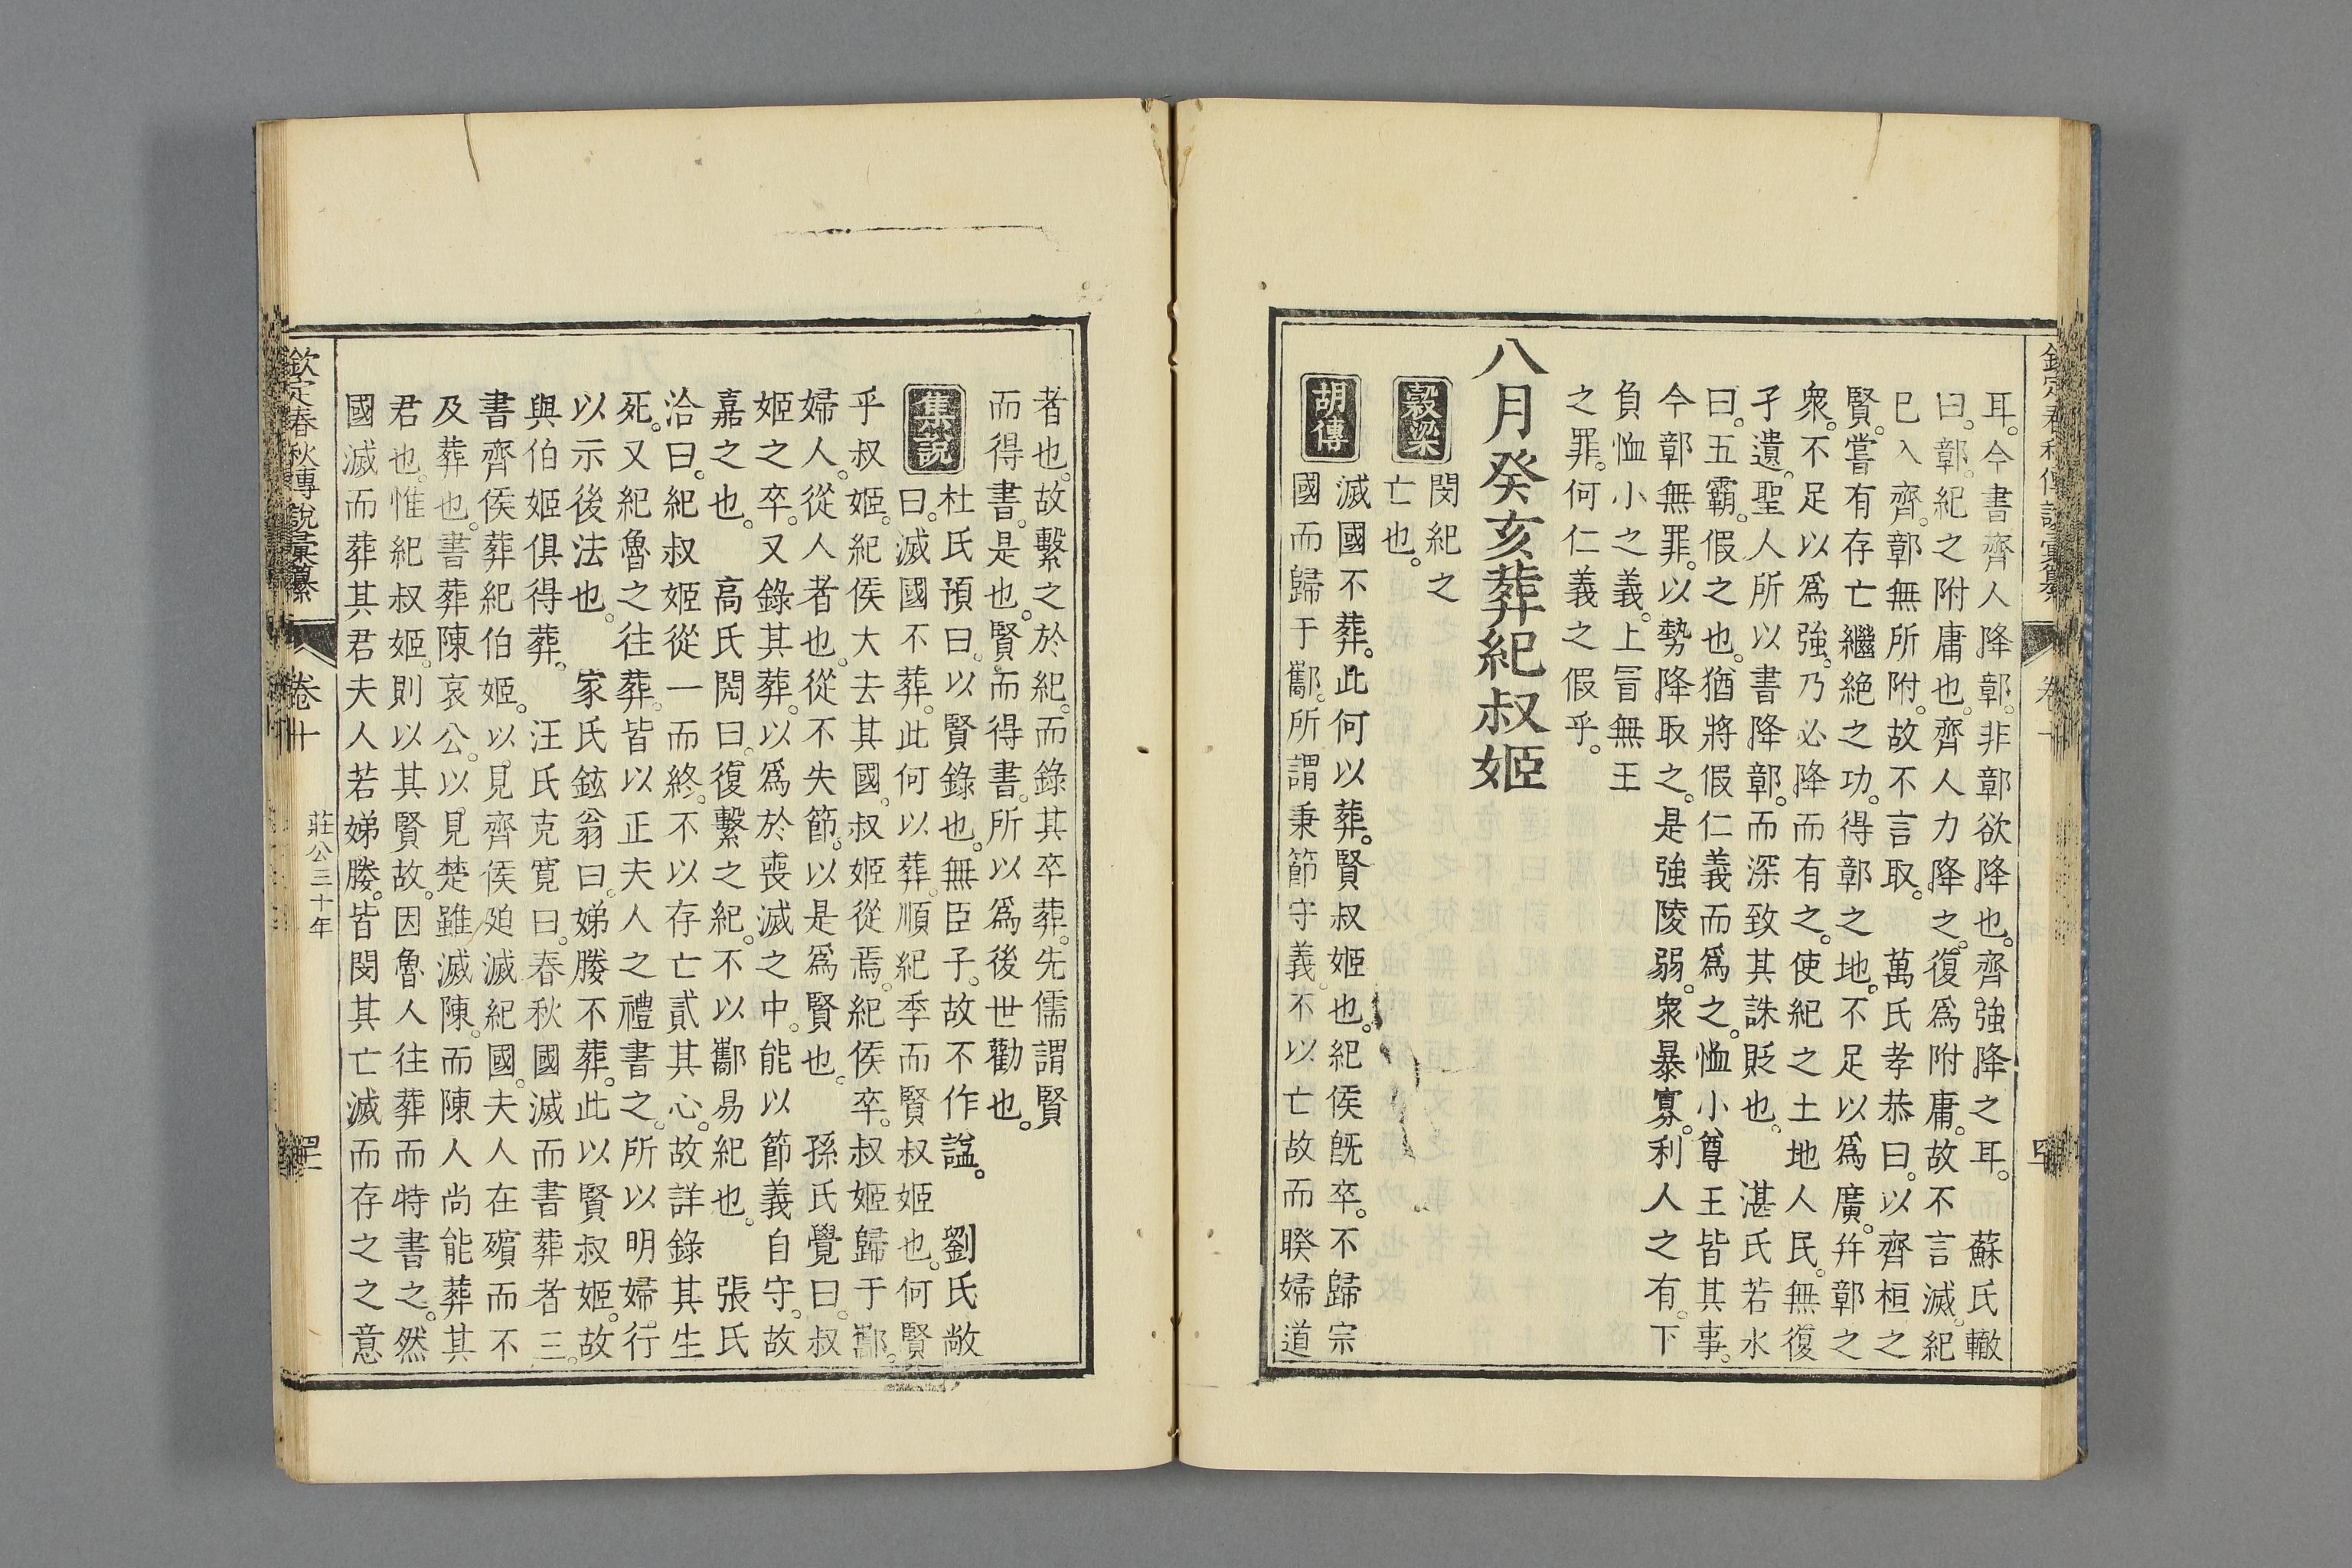 耳。今書齊人降鄣。非鄣欲降也。齊強降之耳。　蘇氏轍
曰。鄣。紀之附庸也。齊人力降之。復爲附庸。故不言滅。紀
已入齊。鄣無所附。故不言取。　萬氏孝恭曰。以齊桓之
賢。嘗有存亡繼絶之功。得鄣之地。不足以爲廣。幷鄣之
衆。不足以爲強。乃必降而有之。使紀之土地人民。無復
孑遺。聖人所以書降鄣。而深致其誅貶也。　湛氏若水
曰。五霸。假之也。猶將假仁義而爲之。恤小尊王皆其事。
今鄣無罪。以勢降取之。是強陵弱。衆暴寡。利人之有。下
負恤小之義。上冒無王
之罪。何仁義之假乎。
八月癸亥葬紀叔姬
穀梁
閔紀之
亡也。
胡傳
滅國不葬。此何以葬。賢叔姬也。紀侯旣卒。不歸宗
國而歸于酅。所謂秉節守義。不以亡故而睽婦道
者也。故繫之於紀。而錄其卒葬。先儒謂賢
而得書。是也。賢而得書。所以爲後世勸也。
集說
杜氏預曰。以賢錄也。無臣子。故不作諡。　劉氏敞
曰。滅國不葬。此何以葬。順紀季而賢叔姬也。何賢
乎叔姬。紀侯大去其國。叔姬從焉。紀侯卒。叔姬歸于酅。
婦人。從人者也。從不失節。以是爲賢也。　孫氏覺曰。叔
姬之卒。又錄其葬。以爲於喪滅之中。能以節義自守。故
嘉之也。　高氏閌曰。復繫之紀。不以酅易紀也。　張氏
洽曰。紀叔姬從一而終。不以存亡貳其心。故詳錄其生
死。又紀魯之往葬。皆以正夫人之禮書之。所以明婦行
以示後法也。　家氏鉉翁曰。娣媵不葬。此以賢叔姬。故
與伯姬俱得葬。　汪氏克寬曰。春秋國滅而書葬者三。
書齊侯葬紀伯姬。以見齊侯廹滅紀國。夫人在殯而不
及葬也。書葬陳哀公。以見楚雖滅陳。而陳人尚能葬其
君也。惟紀叔姬。則以其賢故。因魯人往葬而特書之。然
國滅而葬其君夫人若娣媵。皆閔其亡滅而存之之意
欽定春秋傳說彙纂
卷十
莊公三十年